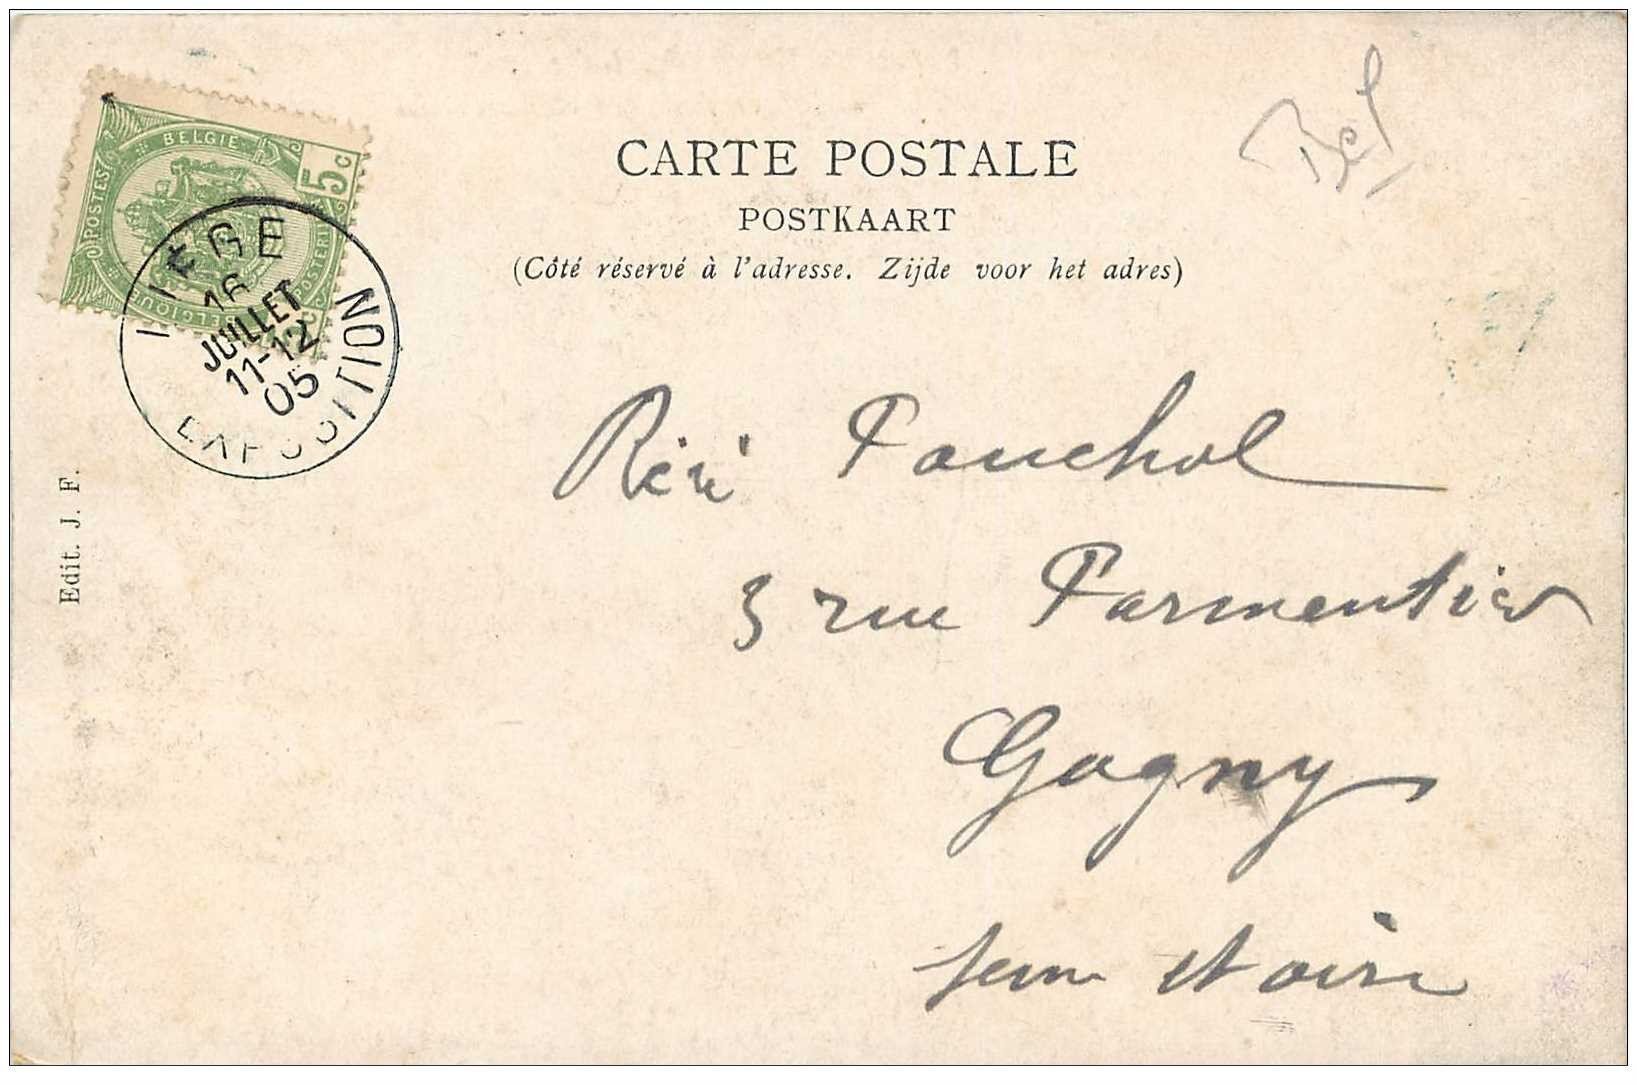 CARTE POSTALE
POSTKAART
(Côté réservé à l'adresse. Zijde voor het adres)
Bel
BELGIE
5c
POSTES
POSTERIJ
BELGIQUE
LIEGE
16
JUILLET
11-12
05
EXPOSITION
Edit. J. F.
Riri Fauchol
3 rue Parmentier
Gagny
Seine et oise